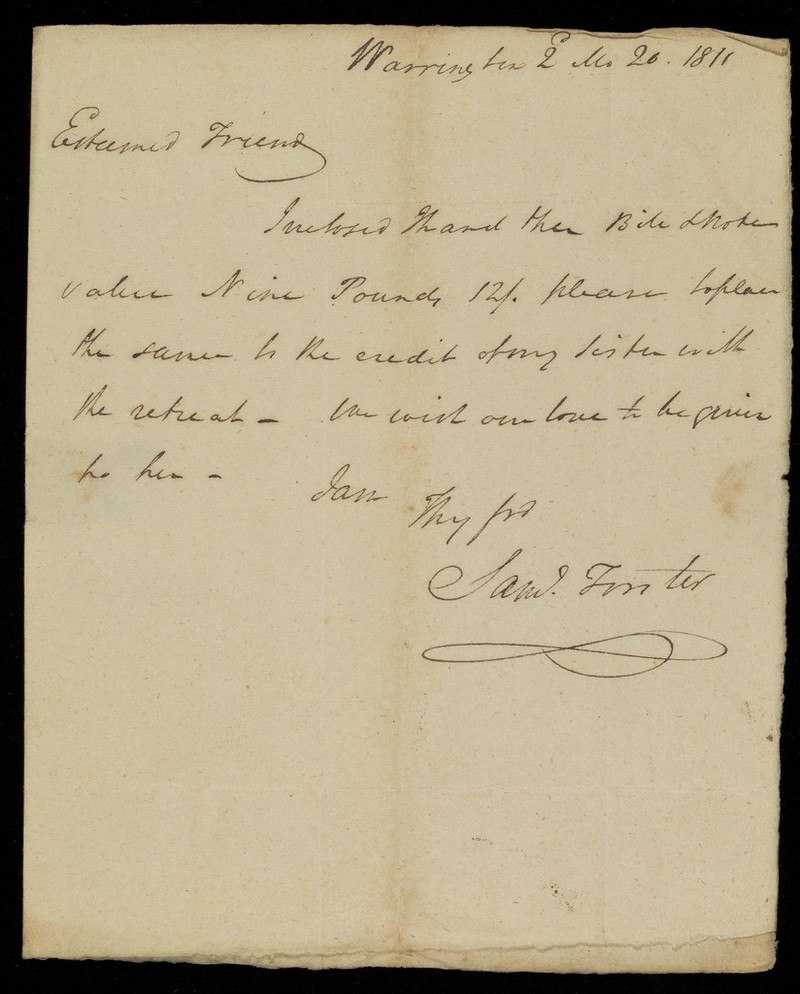 Warrington 2 Mo 20. 1811
Esteemed Friend
Inclosed I hand thee Bill & Note
value Nine Pounds 12/. please to place
the same to the credit of my Sister with
the retreat - We wish our love to be given
to her -
I am
Thy frd
Saml. Forster